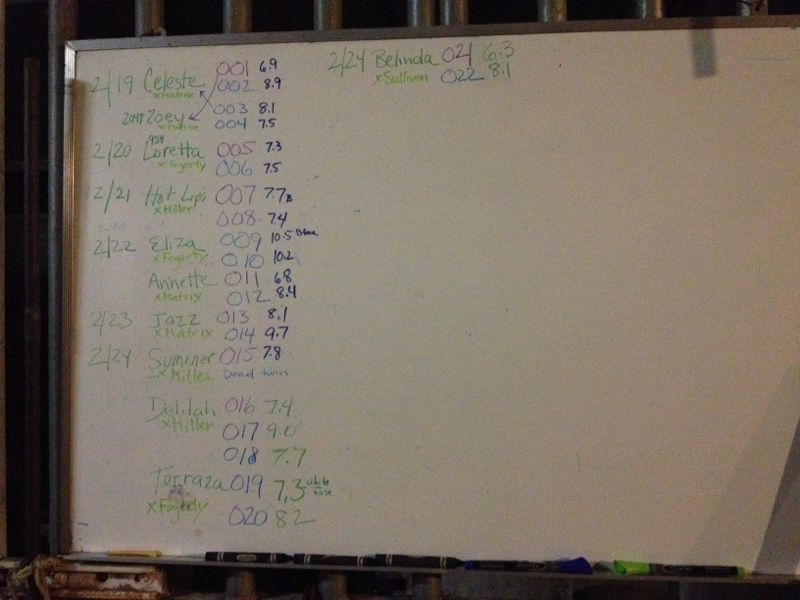 2/19 Celeste 001 6.9
x Matrix 002 8.9
Zoey 003 8.1
x Matrix 004 7.5
959
2/20 Loretta 005 7.3
x Fogerty 006 7.5
2/21 Hot Lips 007 7.7
x Miller
008 7.4
2/22 Eliza 009 10.5
x Fogerty 010 10.2
Annette 011 6.8
x Matrix 012 8.4
2/23 Jazz 013 8.1
x Matrix 014 9.7
2/24 Summer 015 7.8
x Miller Dead twin
Delilah 016 7.4
x Miller 017 9.0
018 7.7
Terraza 019 7.3 white nose
x Fogerty 020 8.2
2/24 Belinda 021 6.3
x Sullivan 022 8.1